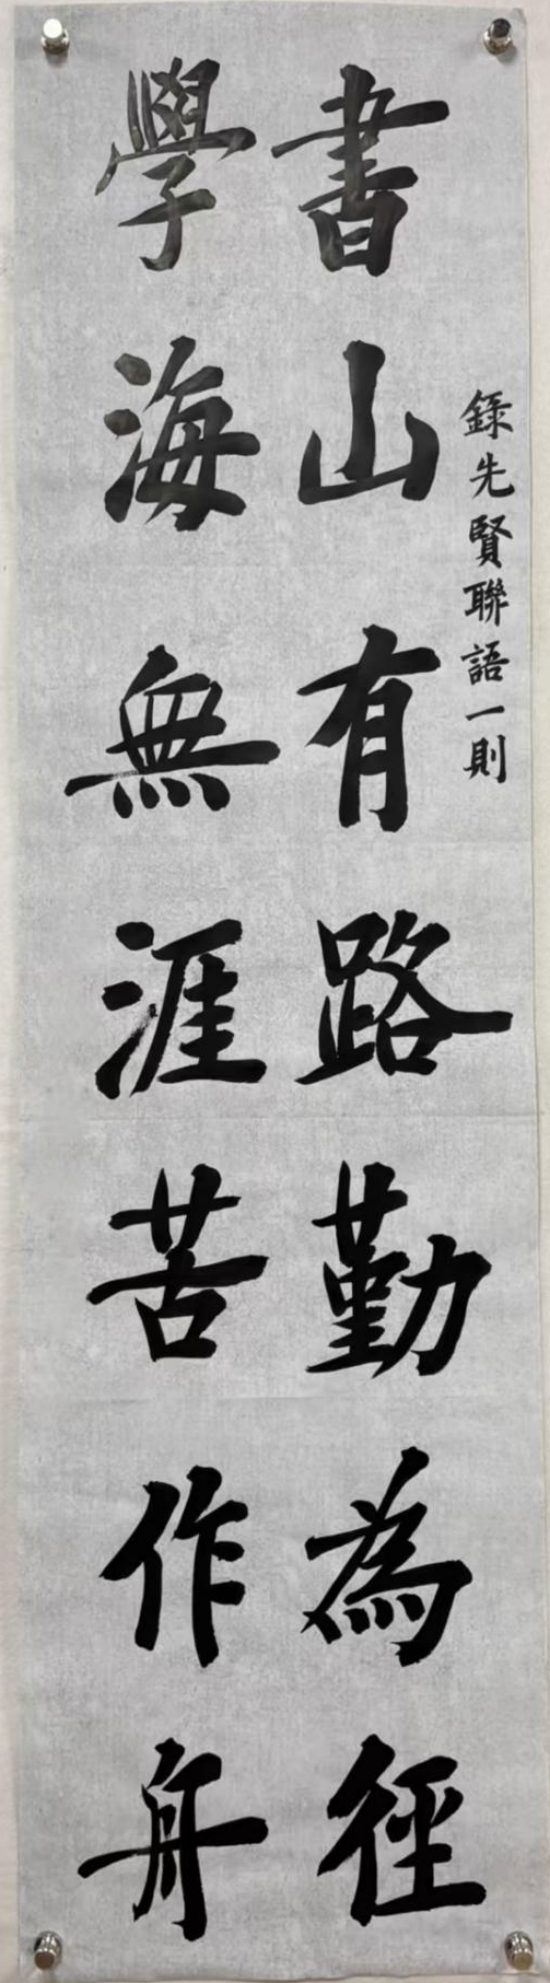 錄先賢聯語一則
書山有路勤為徑
學海無涯苦作舟